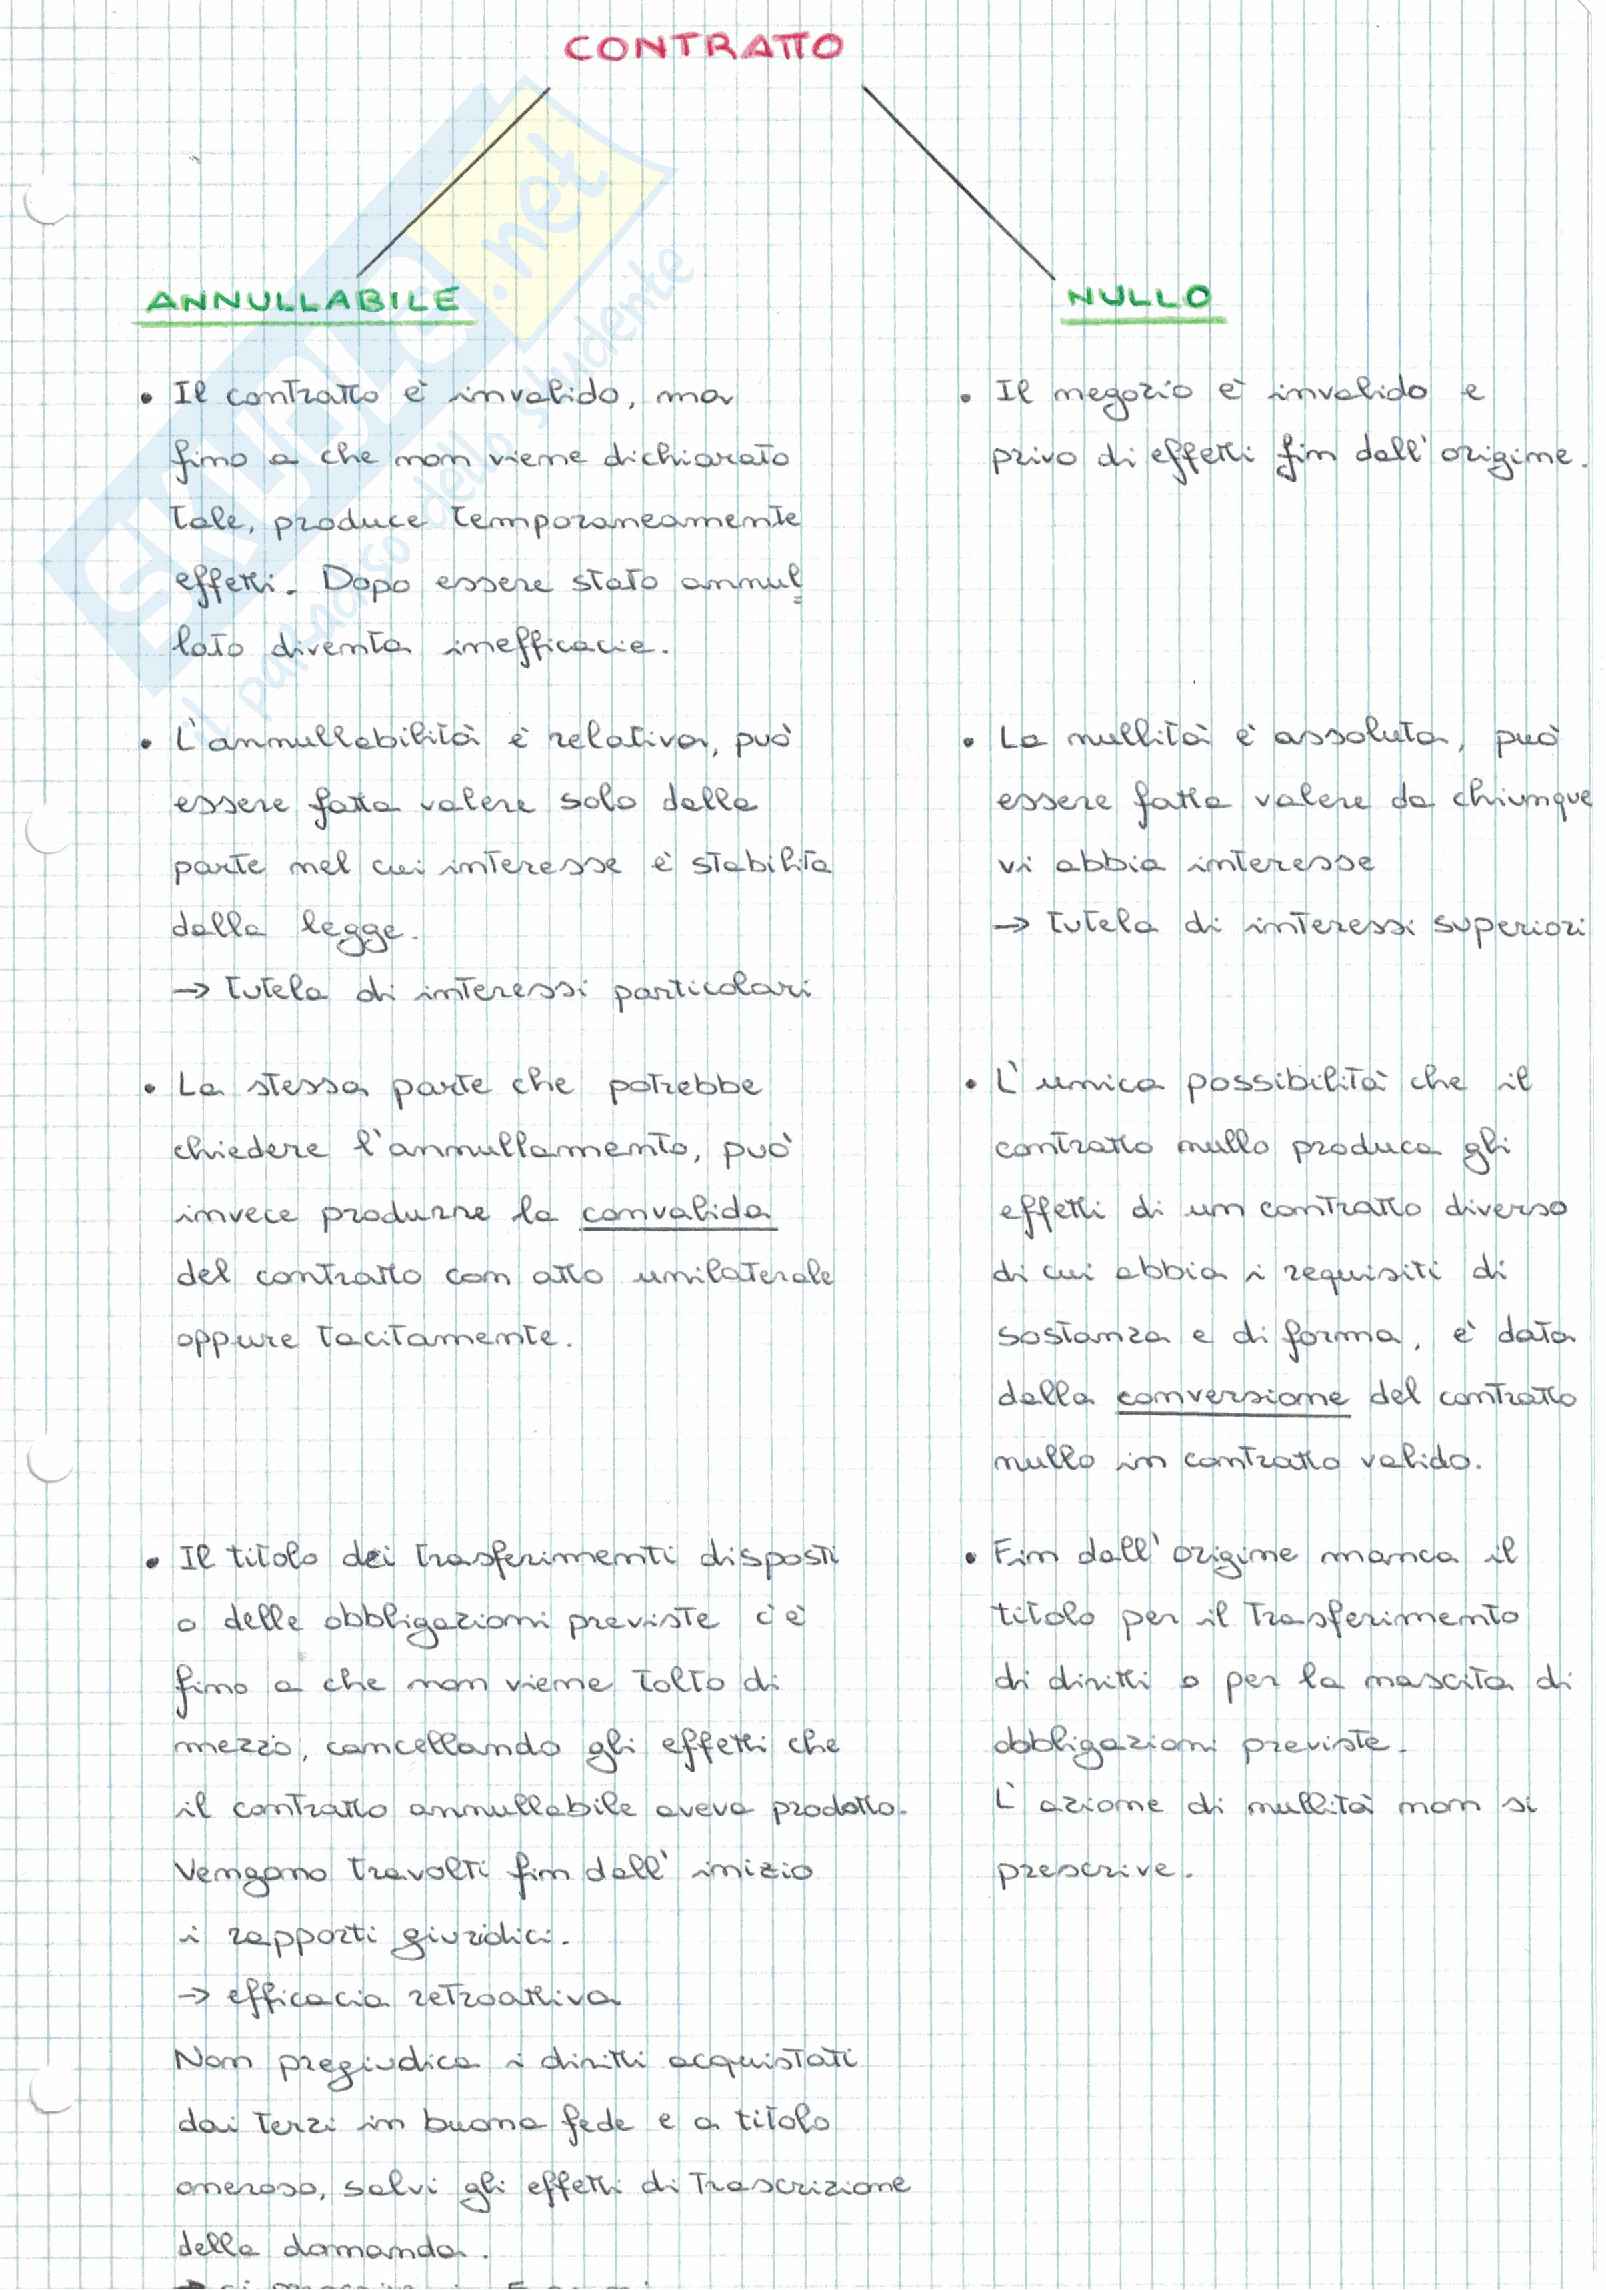 CONTRATTO
ANNULLABILE
• Il contratto è invalido, ma
fino a che non viene dichiarato
tale, produce temporaneamente
effetti. Dopo essere stato annul=
lato diventa inefficacie.
• L'annullabilità è relativa, può
essere fatta valere solo dalla
parte nel cui interesse è stabilita
dalla legge.
→ tutela di interessi particolari
• La stessa parte che potrebbe
chiedere l'annullamento, può
invece produrne la convalida
del contratto con atto unilaterale
oppure tacitamente.
• Il titolo dei trasferimenti disposti
o delle obbligazioni previste c'è
fino a che non viene tolto di
mezzo, cancellando gli effetti che
il contratto annullabile aveva prodotto.
Vengono travolti fin dall' inizio
i rapporti giuridici.
→ efficacia retroattiva
Non pregiudica i diritti acquistati
dai terzi in buona fede e a titolo
oneroso, salvi gli effetti di trascrizione
della domanda.
NULLO
• Il negozio è invalido e
privo di effetti fin dall' origine.
• La nullità è assoluta, può
essere fatta valere da chiunque
vi abbia interesse
→ tutela di interessi superiori
• L' unica possibilità che il
contratto nullo produca gli
effetti di un contratto diverso
di cui abbia i requisiti di
sostanza e di forma, è data
dalla conversione del contratto
nullo in contratto valido.
• Fin dall' origine manca il
titolo per il trasferimento
di diritti o per la nascita di
obbligazioni previste.
L' azione di nullità non si
prescrive.
SKUOLA.net
il paradiso dello studente